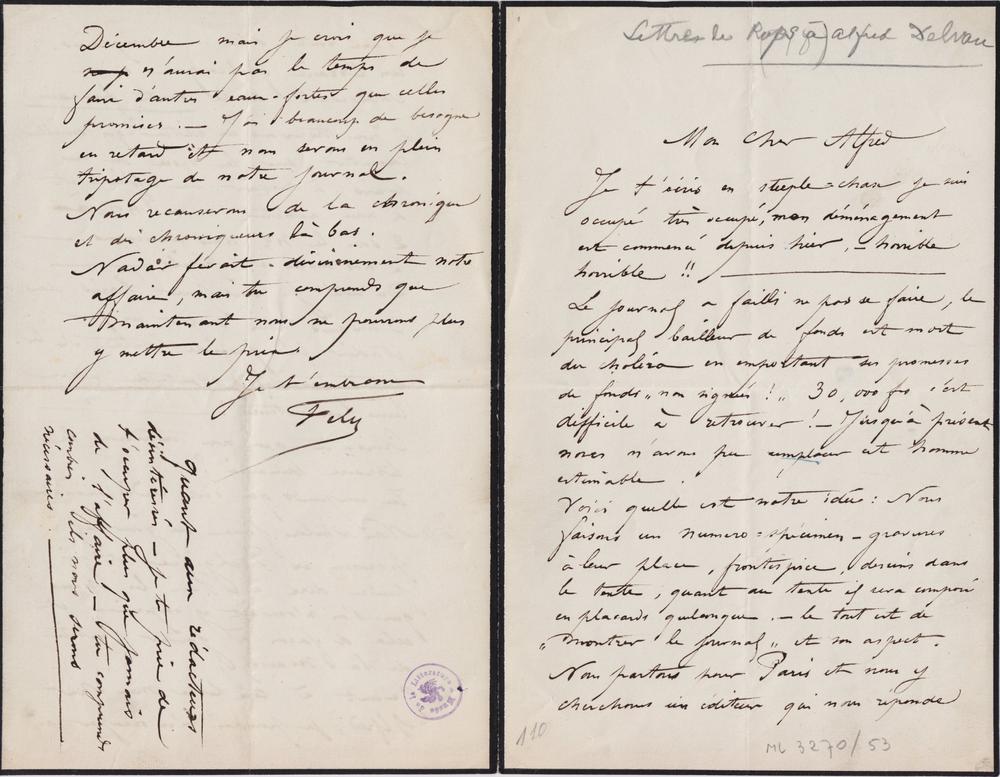 Lettres de Rops (à) Alfred Delvau
Mon Cher Alfred
Je t'écris en steeple=chase je suis
occupé très occupé, mon déménagement
est commencé depuis hier, – horrible
horrible !!
Le journal a failli ne pas se faire, le
principal bailleur de fonds est mort
du choléra en emportant ses promesses
de fonds „non signées!„ 30,000 frs c'est
difficile à retrouver! – Jusqu'à présent
nous n'avons pu remplacer cet homme
estimable.
Voici quelle est notre idée: Nous
faisons un numero=spécimen – gravures
à leur place, frontispice, dessins dans
le texte, quant au texte il sera composé
en placards quelconque. – le tout est de
„montrer le journal„ et son aspect.
Nous partons pour Paris et nous y
cherchons un éditeur qui nous réponde
110
ML 3270/53
Décembre mais je crois que je
n'aurai pas le temps de
faire d'autres eaux-fortes que celles
promises. – J'ai beaucoup de besogne
en retard et nous serons en plein
tripotage de notre journal.
Nous recauserons de la chronique
et des chroniqueurs là bas.
Nadar ferait divinement notre
affaire, mais tu comprends que
maintenant nous ne pouvons plus
y mettre le prix.
Je t'embrasse
Fely
Quant aux rédacteurs
désintéressés – je te prie de
t'occuper plus que jamais
de l'affaire, – tu comprends
combien ils nous seront
nécessaires.
Musée de la Littérature